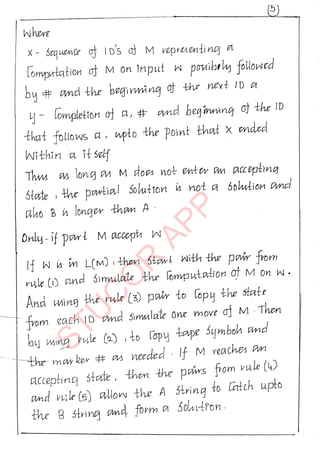 (5)
Where
x - Sequence of ID's of M representing a
Computation of M on input w possibly followed
by # and the beginning of the next ID a
y - Completion of a, # and beginning of the ID
that follows a, upto the point that x ended
within a itself
Thus as long as M does not enter an accepting
State, the partial solution is not a solution and
also B is longer than A.
Only-if part M accepts W
If W is in L(M), then start with the pair from
rule (1) and simulate the computation of M on w.
And using the rule (3) pair to copy the state
from each ID and simulate one move of M. Then
by using rule (2), to copy tape symbols and
the marker # as needed. If M reaches an
accepting state, then the pairs from rule (4)
and rule (5) allow the A string to catch upto
the B string and form a solution.
STUCOR APP